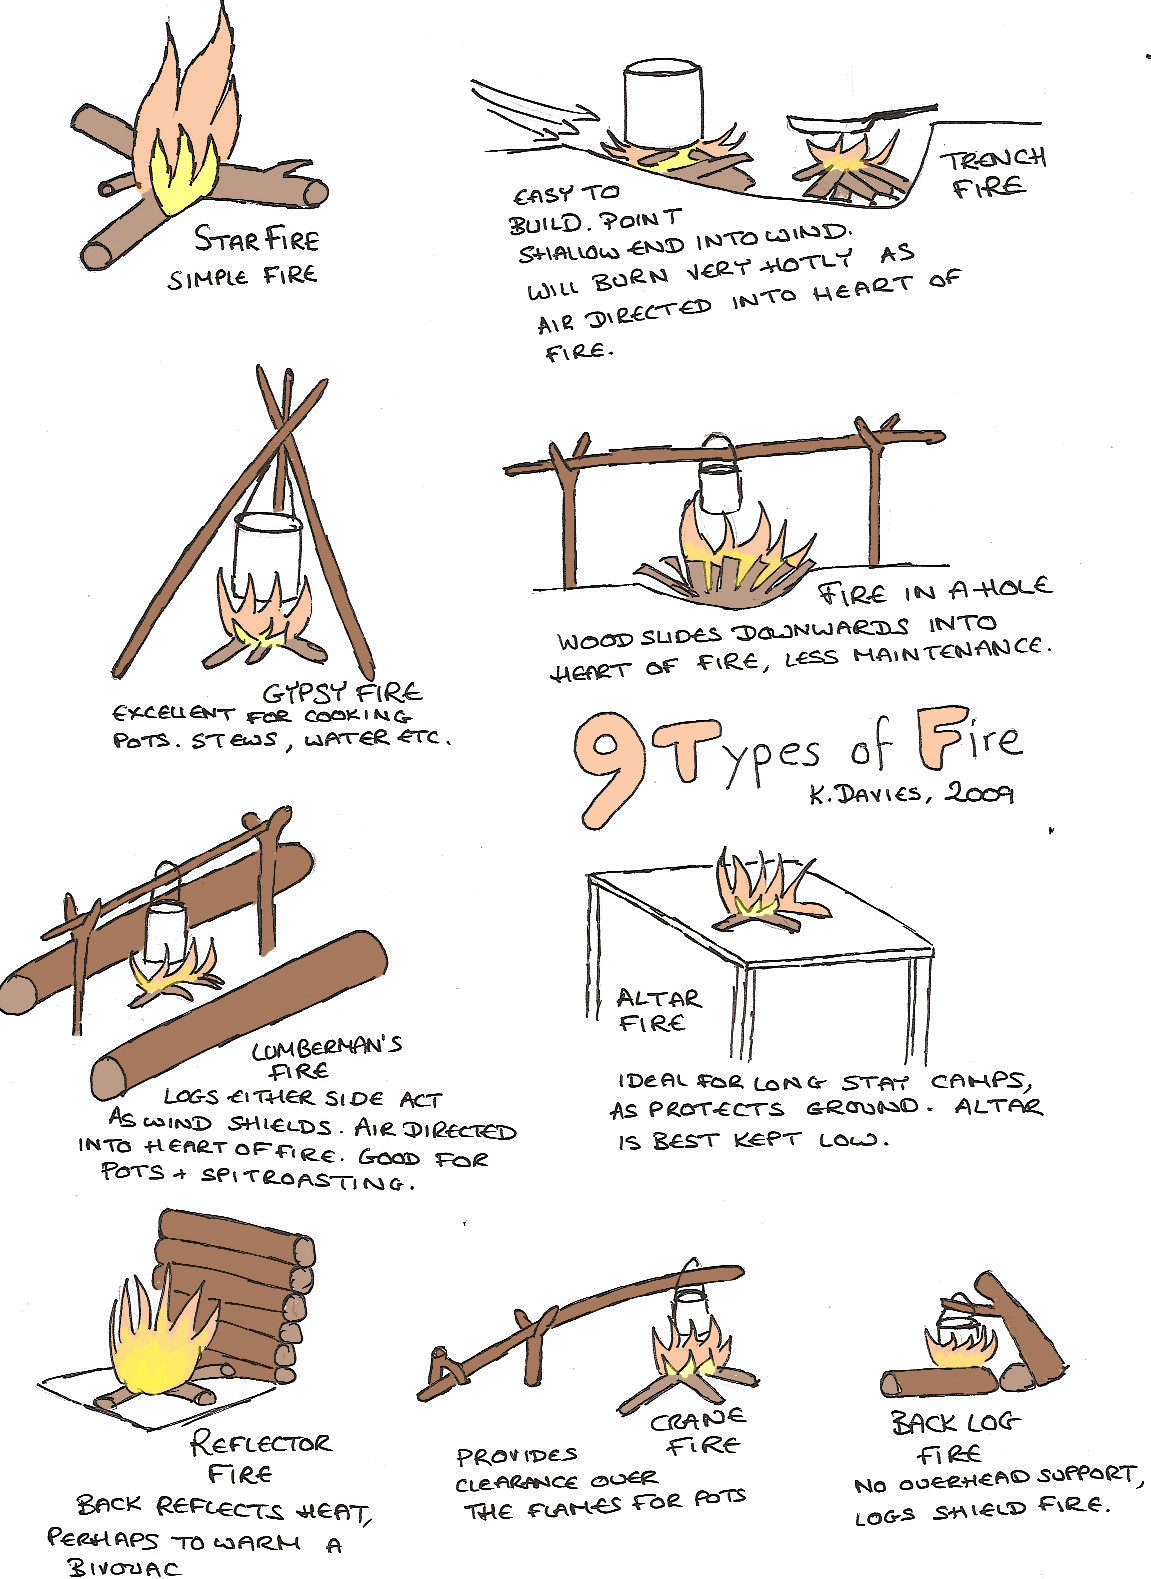 STAR FIRE
SIMPLE FIRE
TRENCH
FIRE
EASY TO
BUILD. POINT
SHALLOW END INTO WIND.
WILL BURN VERY HOTLY AS
AIR DIRECTED INTO HEART OF
FIRE.
GYPSY FIRE
EXCELLENT FOR COOKING
POTS. STEWS, WATER ETC.
FIRE IN A HOLE
WOOD SLIDES DOWNWARDS INTO
HEART OF FIRE, LESS MAINTENANCE.
9 Types of Fire
K. DAVIES, 2009
LUMBERMAN'S
FIRE
LOGS EITHER SIDE ACT
AS WIND SHIELDS. AIR DIRECTED
INTO HEART OF FIRE. GOOD FOR
POTS + SPITROASTING.
ALTAR
FIRE
IDEAL FOR LONG STAY CAMPS,
AS PROTECTS GROUND. ALTAR
IS BEST KEPT LOW.
REFLECTOR
FIRE
BACK REFLECTS HEAT,
PERHAPS TO WARM A
BIVOUAC
CRANE
FIRE
PROVIDES
CLEARANCE OVER
THE FLAMES FOR POTS
BACK LOG
FIRE
NO OVERHEAD SUPPORT,
LOGS SHIELD FIRE.